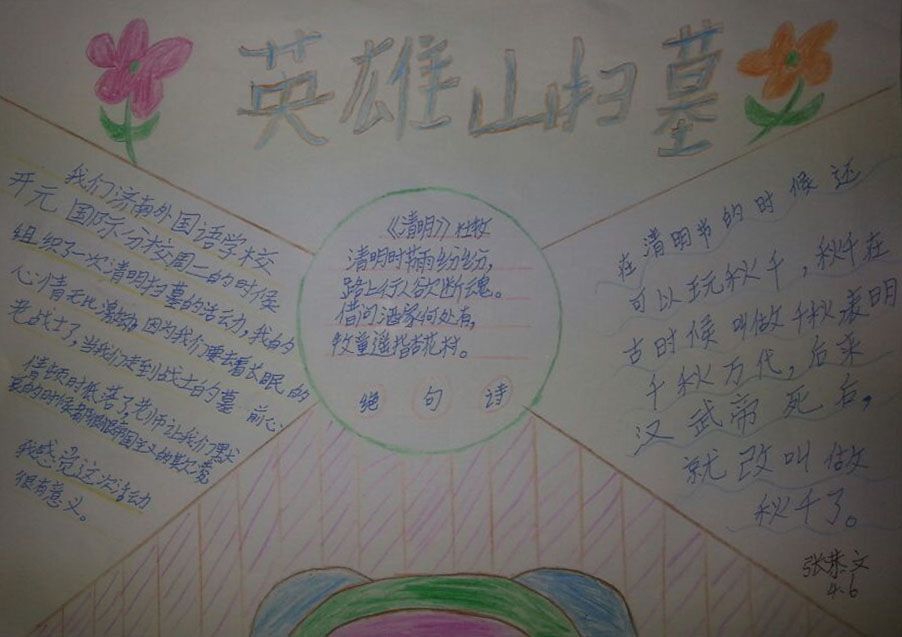 英雄山扫墓
我们济南外国语学校
开元国际分校周二的时候
组织了一次清明扫墓的活动,我的
心情无比激动,因为我们要去看长眠的
老战士了,当我们走到战士的墓前心
情顿时低落了,老师让我们默
哀的时候
我感觉这次活动
很有意义。
《清明》杜牧
清明时节雨纷纷,
路上行人欲断魂。
借问酒家何处有,
牧童遥指杏花村。
绝句诗
在清明节的时候还
可以玩秋千,秋千在
古时候叫做千秋表明
千秋万代,后来
汉武帝死后,
就改叫做
秋千了。
张恭文
4.6